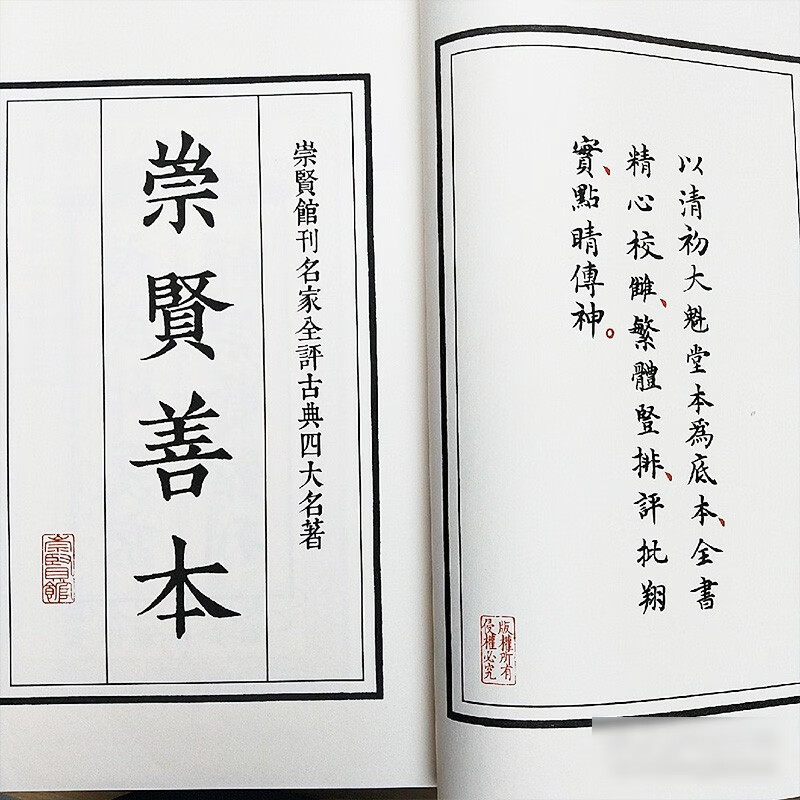 以清初大魁堂本為底本、全書
精心校雠、繁體豎排、評批翔
實、點睛傳神。
版權所有
侵權必究
崇賢館刊名家全評古典四大名著
崇賢善本
崇賢館